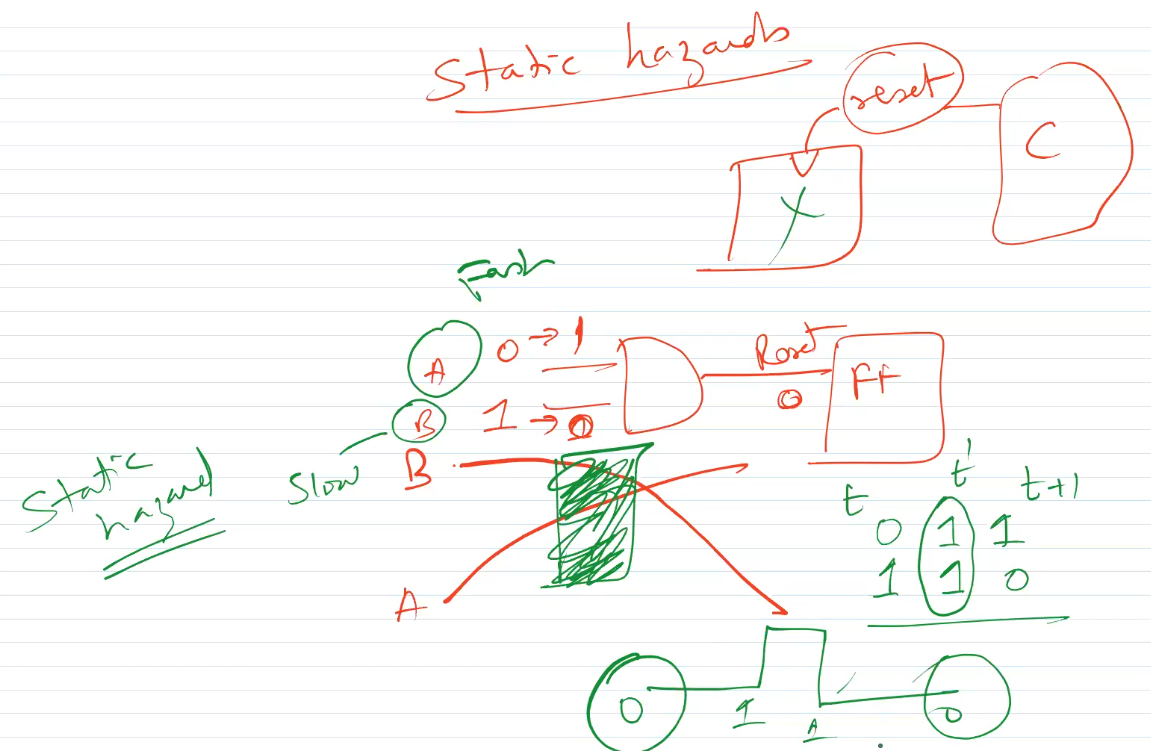 Static hazards
reset
C
X
Fast
A 0 → 1
B 1 → 0
Reset
0
FF
B
Slow
Static
hazard
A
t t' t+1
0 1 1
1 1 0
0 1 0